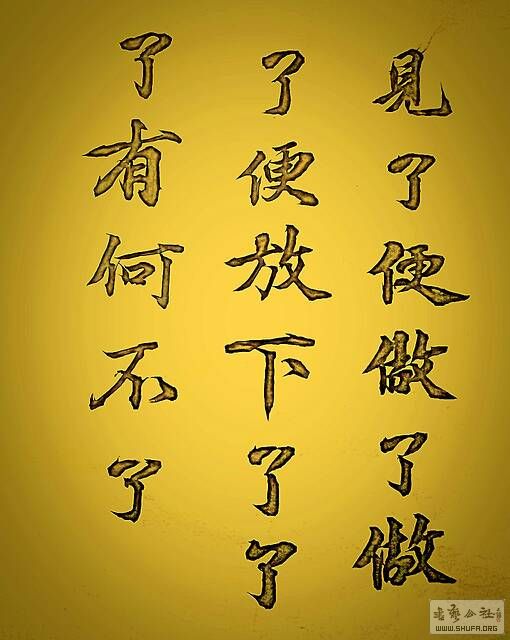 見了便做了做
了便放下了了
了有何不了
書藝公社
WWW.SHUFA.ORG